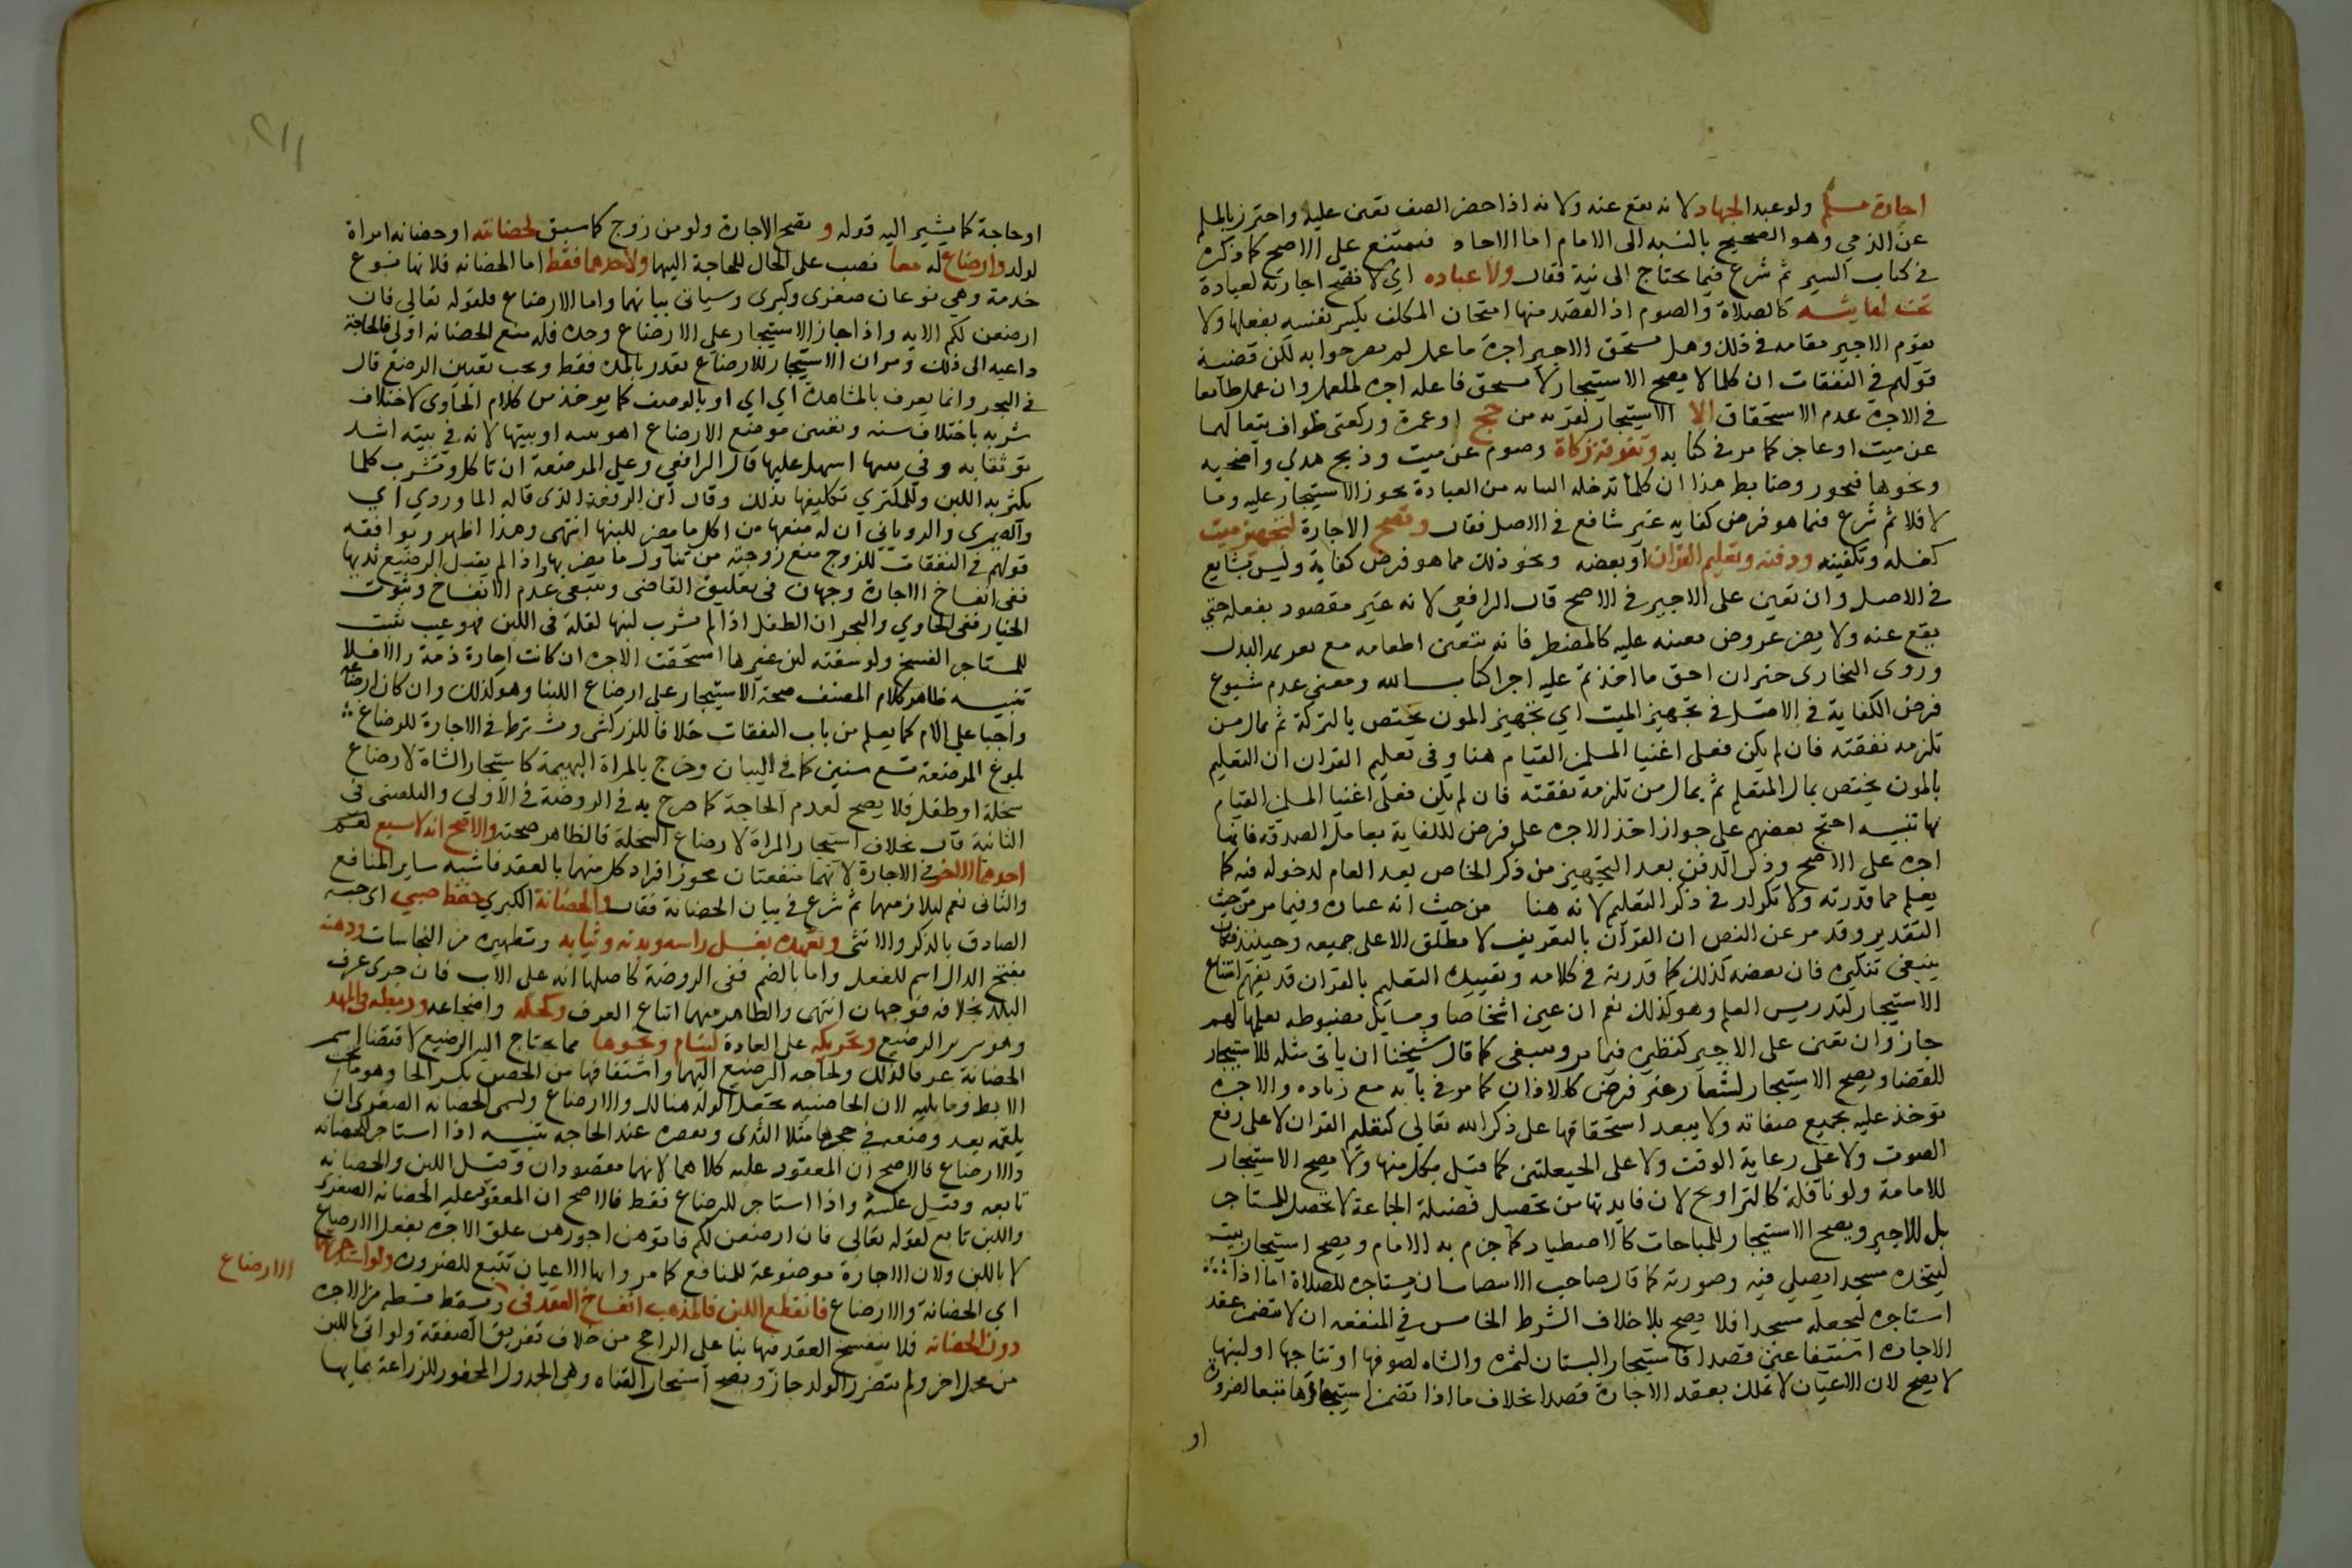 اجارة مسلم ولو عبدا لجهاد لانه يقع عنه ولانه اذا حضر الصف تعين عليه واحترز بالمسلم
عن الذمي وهو الصحيح بالنسبه الى الامام اما الاحاد فيمتنع على الاصح كما ذكره
في كتاب السير ثم شرع فيما يحتاج الى نية فقال ولا عباده اي لا تصح اجارته لعبادة
تجب لها نية كالصلاة والصوم اذ القصد منها امتحان المكلف بكسر نفسه بفعلها ولا
يقوم الاجير مقامه في ذلك وهل يستحق الاجير اجرة ما عمل لم يصرحوا به لكن قضية
قولهم في النفقات ان كلما لا يصح الاستيجار لا يستحق فاعله اجره لما عمل وان عمل طامعا
في الاجره عدم الاستحقاق الا الاستيجار لقربه من حج او عمرة وركعتى طواف يتبعا لهما
عن ميت او عاجز كما مر في كتابه وتفرقة زكاة وصوم عن ميت وذبح هدي واضحيه
ونحوها فيجوز وضابط هذا ان كلما تدخله النيابه من العبادة يجوز الاستيجار عليه وما
لا فلا ثم شرع فيما هو فرض كفايه غير شائع في الاصل فقال وتصح الاجارة لتجهيز ميت
كغسله وتكفينه ودفنه وتعليم القران او بعضه ونحو ذلك مما هو فرض كفاية وليس بشايع
في الاصل وان تعين على الاجير في الاصح قال الرافعي لانه غير مقصود بفعله حتى
يقع عنه ولا يضر عروض تعينه عليه كالمضطر فانه يتعين اطعامه مع تغريمه البدل
وروى البخارى خبر ان احق ما اخذتم عليه اجرا كتاب الله ومعنى عدم شيوع
فرض الكفاية في الاصل في تجهيز الميت اي تجهيز المون يختص بالتركة ثم بمال من
تلزمه نفقته فان لم يكن فعلى اغنيا المسلمين القيام هنا وفي تعليم القران ان التعليم
بالمون يختص بمال المتعلم ثم بمال من تلزمه نفقته فان لم يكن فعلى اغنيا المسلمين القيام
بها تنبيه احتج بعضهم على جواز اخذ الاجره على فرض الكفاية بعامل الصدقه فانها
اجره على الاصح وذكر الدفن بعد التجهيز من ذكر الخاص بعد العام لدخوله فيه كما
يعلم مما قدرته ولا تكرار في ذكر التعليم لانه هنا من حيث انه عباده وفيما مر من حيث
التقدير وقد مر عن النص ان القرآن بالتعريف لا يطلق الا على جميعه وحينئذ فكان
ينبغى تنكيره فان بعضه كذلك كما قدرته في كلامه وتقييد التعليم بالقران قد يفهم امتناع
الاستيجار لتدريس العلم وهو كذلك نعم ان عين اشخاصا ومسايل مضبوطه يعلمها لهم
جاز وان تعين على الاجير كنظيره فيما مر وينبغى كما قال شيخنا ان ياتى مثله للاستيجار
للقضا ويصح الاستيجار لشعار غير فرض كالاذان كما مر في بابه مع زياده والاجره
توخذ عليه بجميع صفاته ولا يبعد استحقاقها على ذكر الله تعالى كتعليم القران لا على رفع
الصوت ولا على رعاية الوقت ولا على الحيعلتين كما قيل بكل منها ولا يصح الاستيجار
للامامة ولو نافلة كالتراويح لان فايدتها من تحصيل فضيلة الجماعة لا تحصل للمستاجر
بل للاجير ويصح الاستيجار للمباحات كالاصطياد كما جزم به الامام ويصح استيجار بيت
ليتخذه مسجدا يصلى فيه وصورته كما قال صاحب الانتصار ان يستاجره للصلاة اما اذا
استاجره ليجعله مسجدا فلا يصح بلا خلاف الشرط الخامس في المنفعه ان لا يتضمن عقد
الاجاره استيفا عين قصدا فاستيجار البستان لثمره والشاه لصوفها او نتاجها او لبنها
لا يصح لان الاعيان لا تملك بعقد الاجارة قصدا بخلاف ما اذا تضمن استيجارها تبعا لضرورة
او
او حاجة كما يشير اليه قوله و تصح الاجارة ولو من زوج كما سبق لحضانته او حضانه امراة
لولد وارضاع له معا نصب على الحال للحاجة اليهما ولاحدهما فقط اما الحضانه فلانها نوع
خدمة وهي نوعان صغرى وكبرى وسياتى بيانهما واما الارضاع فلقوله تعالى فان
ارضعن لكم الايه واذا جاز الاستيجار على الارضاع وحده فله مع الحضانه اولى فالحاجة
داعيه الى ذلك ومر ان الاستيجار للارضاع يقدر بالمده فقط ويجب تعيين الرضيع قال
في البحر وانما يعرف بالمشاهدة اي او بالوصف كما يوخذ من كلام الحاوى لاختلاف
شربه باختلاف سنه وتعيين موضع الارضاع اهو بيته او بيتها لانه في بيته اشد
توثقا به وفي بيتها اسهل عليها قال الرافعي وعلى المرضعة ان تاكل وتشرب كلما
يكثر به اللبن وللمكتري تكليفها بذلك وقال ابن الرفعة الذى قاله الماوردي اي
والصيمرى والروياني ان له منعها من اكل ما يضر للبنها انتهى وهذا اظهر ويوافقه
قولهم في النفقات للزوج منع زوجته من تناول ما يضر بها واذا لم يقبل الرضيع ثديها
ففى انفساخ الاجارة وجهان في تعليق القاضى وينبغى عدم الانفساخ وثبوت
الخيار ففى الحاوي والبحر ان الطفل اذا لم يشرب لبنها لعلة في اللبن فهو عيب يثبت
للمستاجر الفسخ ولو سقته لبن غيرها استحقت الاجره ان كانت اجارة ذمة والا فلا
تنبيه ظاهر كلام المصنف صحة الاستيجار على ارضاع اللبا وهو كذلك وان كان ارضاعه
واجبا على الام كما يعلم من باب النفقات خلافا للزركشى ويشترط في الاجارة للرضاع
بلوغ المرضعة تسع سنين كما في البيان وخرج بالمراة البهيمة كاستيجار الشاة لارضاع
سخلة او طفل فلا يصح لعدم الحاجة كما صرح به في الروضة في الاولى والبلقينى في
الثانية قال بخلاف استيجار المراة لارضاع السخلة فالظاهر صحته والاصح انه لا يستتبع
احدهما الاخر في الاجارة لانهما منفعتان يجوز افراد كل منهما بالعقد فاشبه ساير المنافع
والثانى نعم لتلازمهما ثم شرع في بيان الحضانة فقال والحضانة الكبري حفظ صبي اى جنسه
الصادق بالذكر والانثى وتعهده بغسل راسه وبدنه وثيابه وتطهيره من النجاسات ودهنه
بفتح الدال اسم للفعل واما بالضم ففى الروضة كاصلها انه على الاب فان جرى عرف
البلد بخلافه فوجهان انتهى والظاهر منهما اتباع العرف وكحله واضجاعه وربطه في المهد
وهو سرير الرضيع وتحريكه على العادة لينام ونحوها مما يحتاج اليه الرضيع لاقتضا اسم
الحضانة عرفا لذلك ولحاجه الرضيع اليها واشتقاقها من الحضن بكسر الحا وهو ما تحت
الابط وما يليه لان الحاضنه تجعل الولد هنالك والارضاع ويسمى الحضانه الصغرى ان
يلقمه بعد وضعه في حجرها مثلا الثدى ويعصره عند الحاجه تنبيه اذا استاجر للحضانه
والارضاع فالاصح ان المعقود عليه كلاهما لانهما مقصودان وقيل اللبن والحضانه
تابعه وقيل عكسه واذا استاجر للرضاع فقط فالاصح ان المعقود عليه الحضانه الصغرى
واللبن تابع لقوله تعالى فان ارضعن لكم فاتوهن اجورهن علق الاجره بفعل الارضاع
لا باللبن ولان الاجارة موضوعة للمنافع كما مر وانما الاعيان تتبع للضرورة ولو استاجر لهما
الارضاع
اي الحضانة والارضاع فانقطع اللبن فالمذهب انفساخ العقد في ويسقط قسطه من الاجره
دون الحضانه فلا ينفسخ العقد فيها بنا على الراجح من خلاف تفريق الصفقة ولو اتى باللبن
من محل اخر ولم يتضرر الولد جاز ويصح استيجار القناه وهى الجدول المحفور للزراعة بمايها